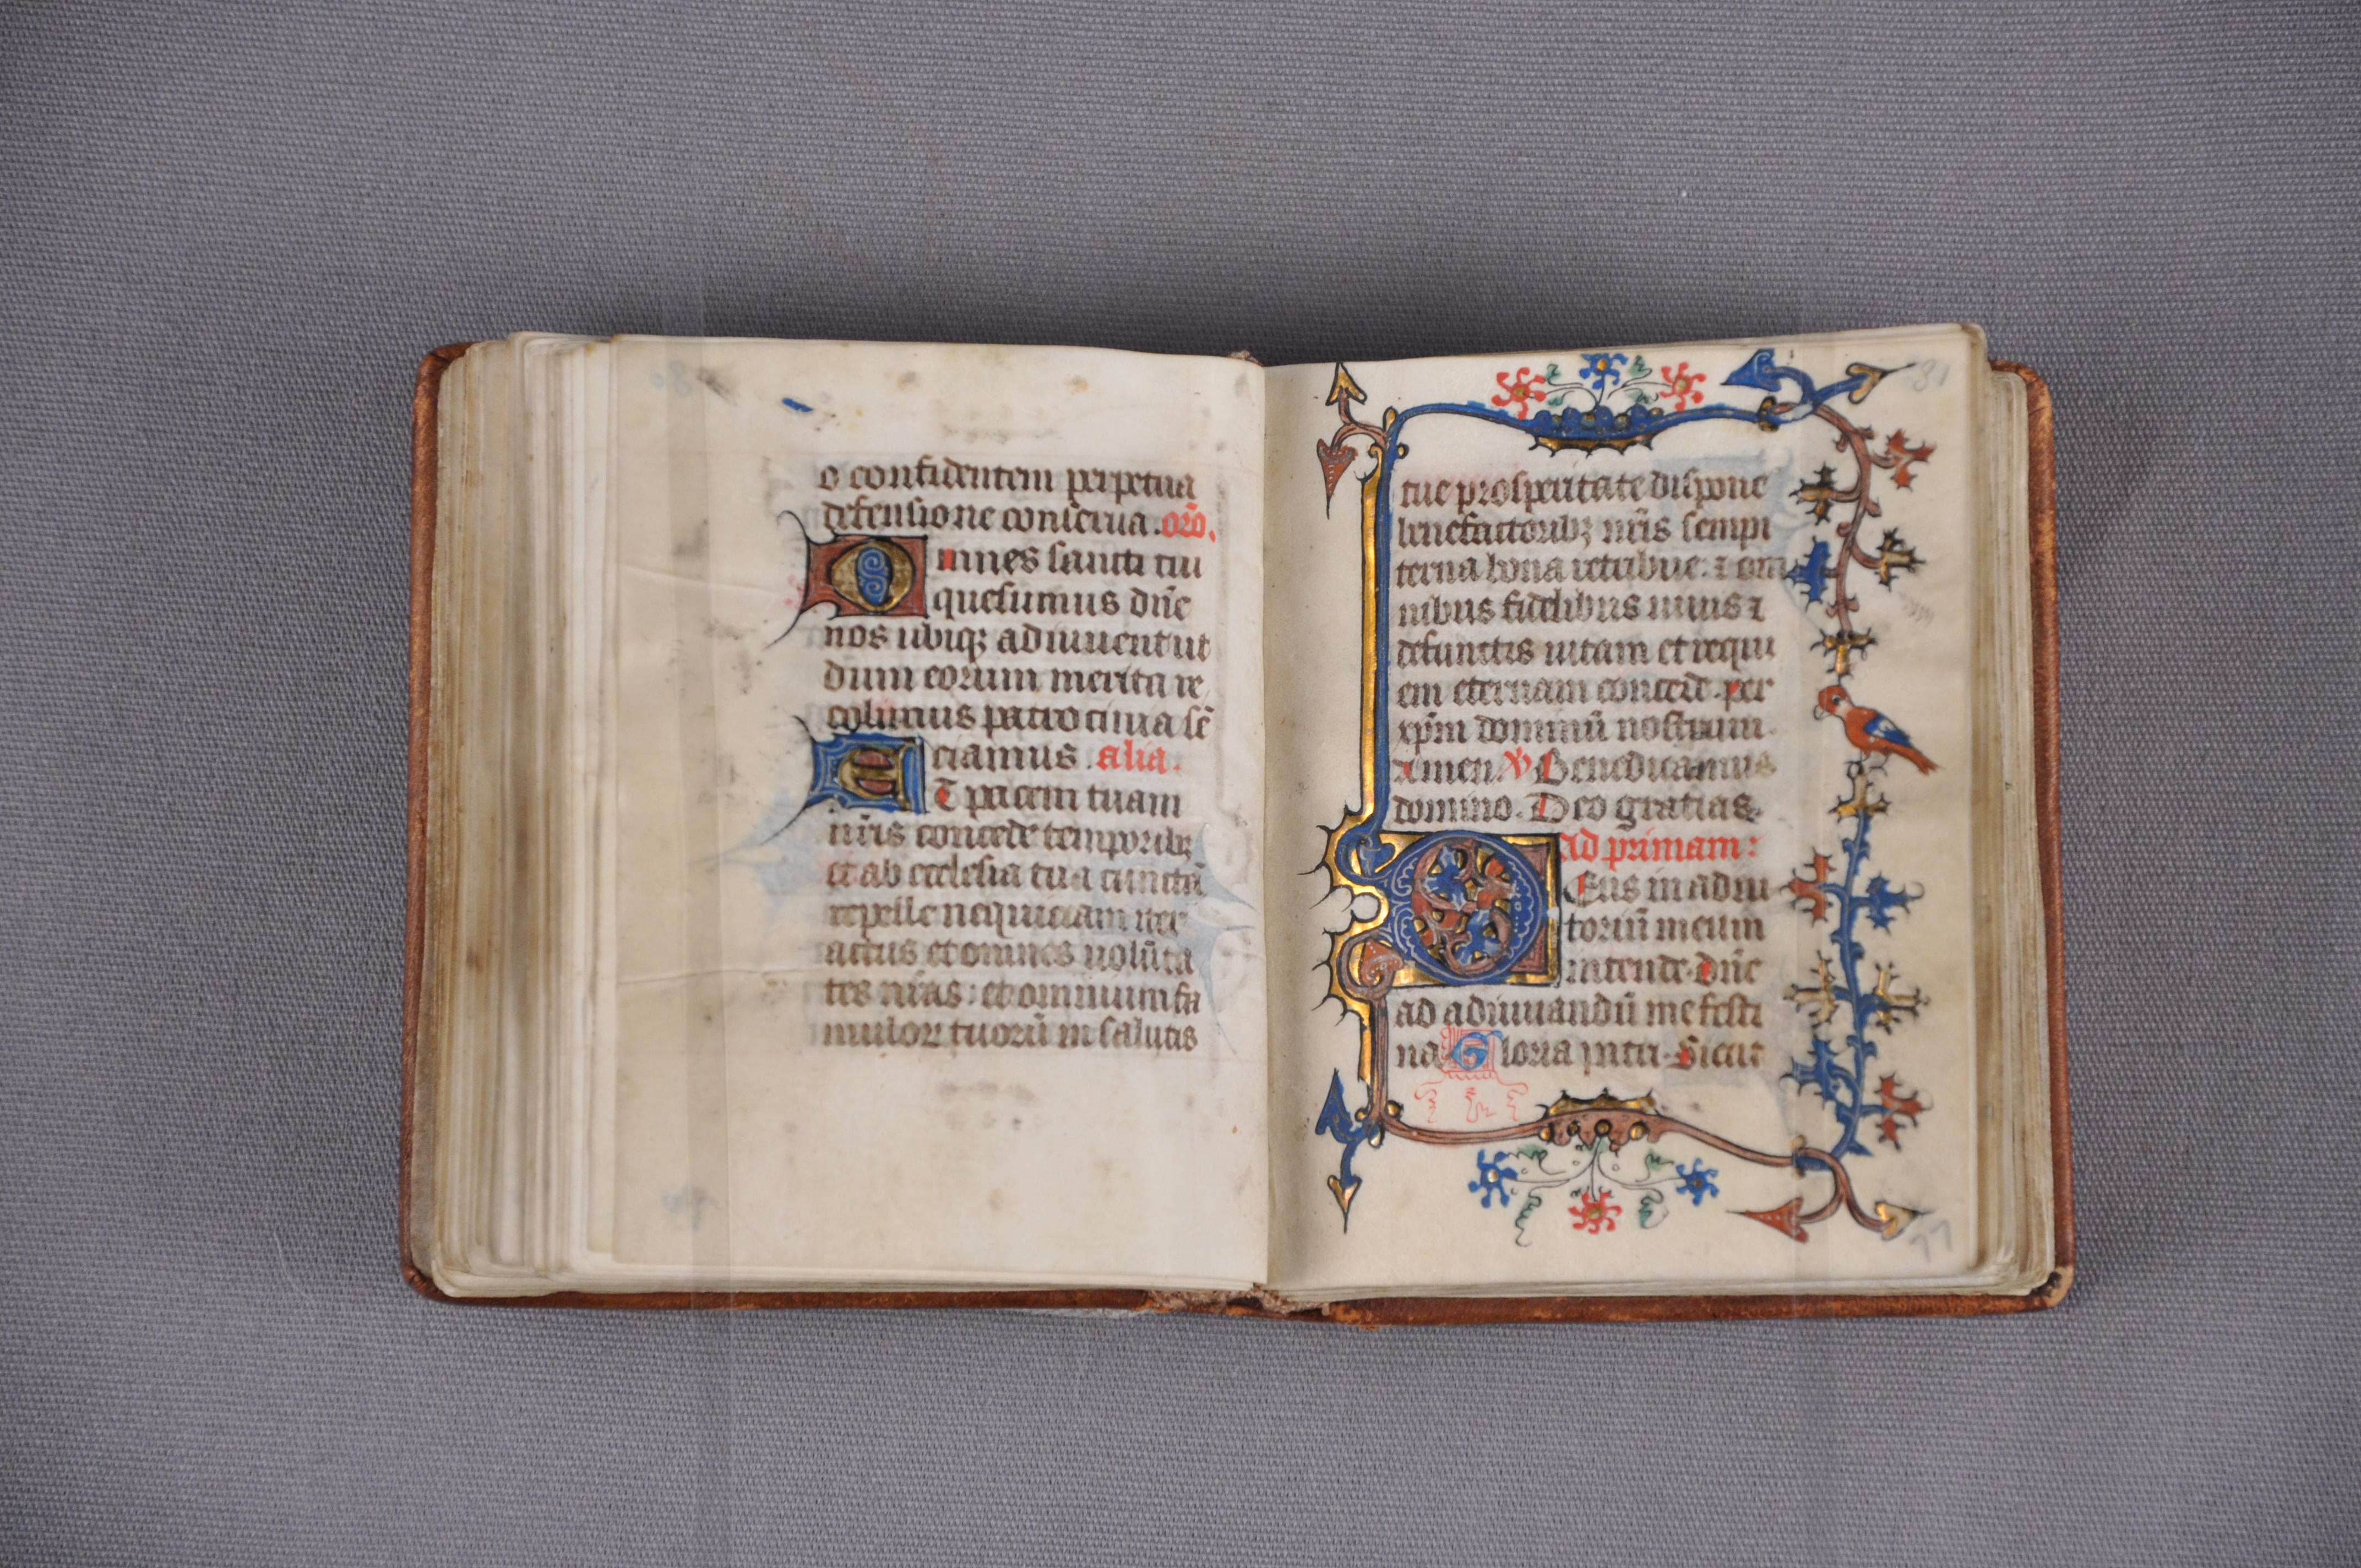 o confidentem perpetua
defensione conserua. oro.
Omnes sancti tui
quesumus dñe
nos ubiqꝫ adiuuent ut
dum eorum merita re
colimus patrocinia sẽ
ciamus. alia.
ET pacem tuam
nr̃is concede temporibꝫ
et ab ecclesia tua cunctã
repelle nequiciam iter
actus et omnes uolũta
tes nr̃as: et omnium fa
mulorꝝ tuorũ in salutis
81
tue prosperitate dispone
benefactoribꝫ nr̃is sempi
terna bona retribue. ⁊ om
nibus fidelibus uiuis ⁊
defunctis uitam et requi
em eternam concede. per
xp̃m dominũ nostrum.
Amen. ℣ Benedicamus
domino. Deo gratias.
Ad primam:
DEus in adiu
toriũ meum
intende. dñe
ad adiuuandũ me festi
na Gloria patri. Sicut
77